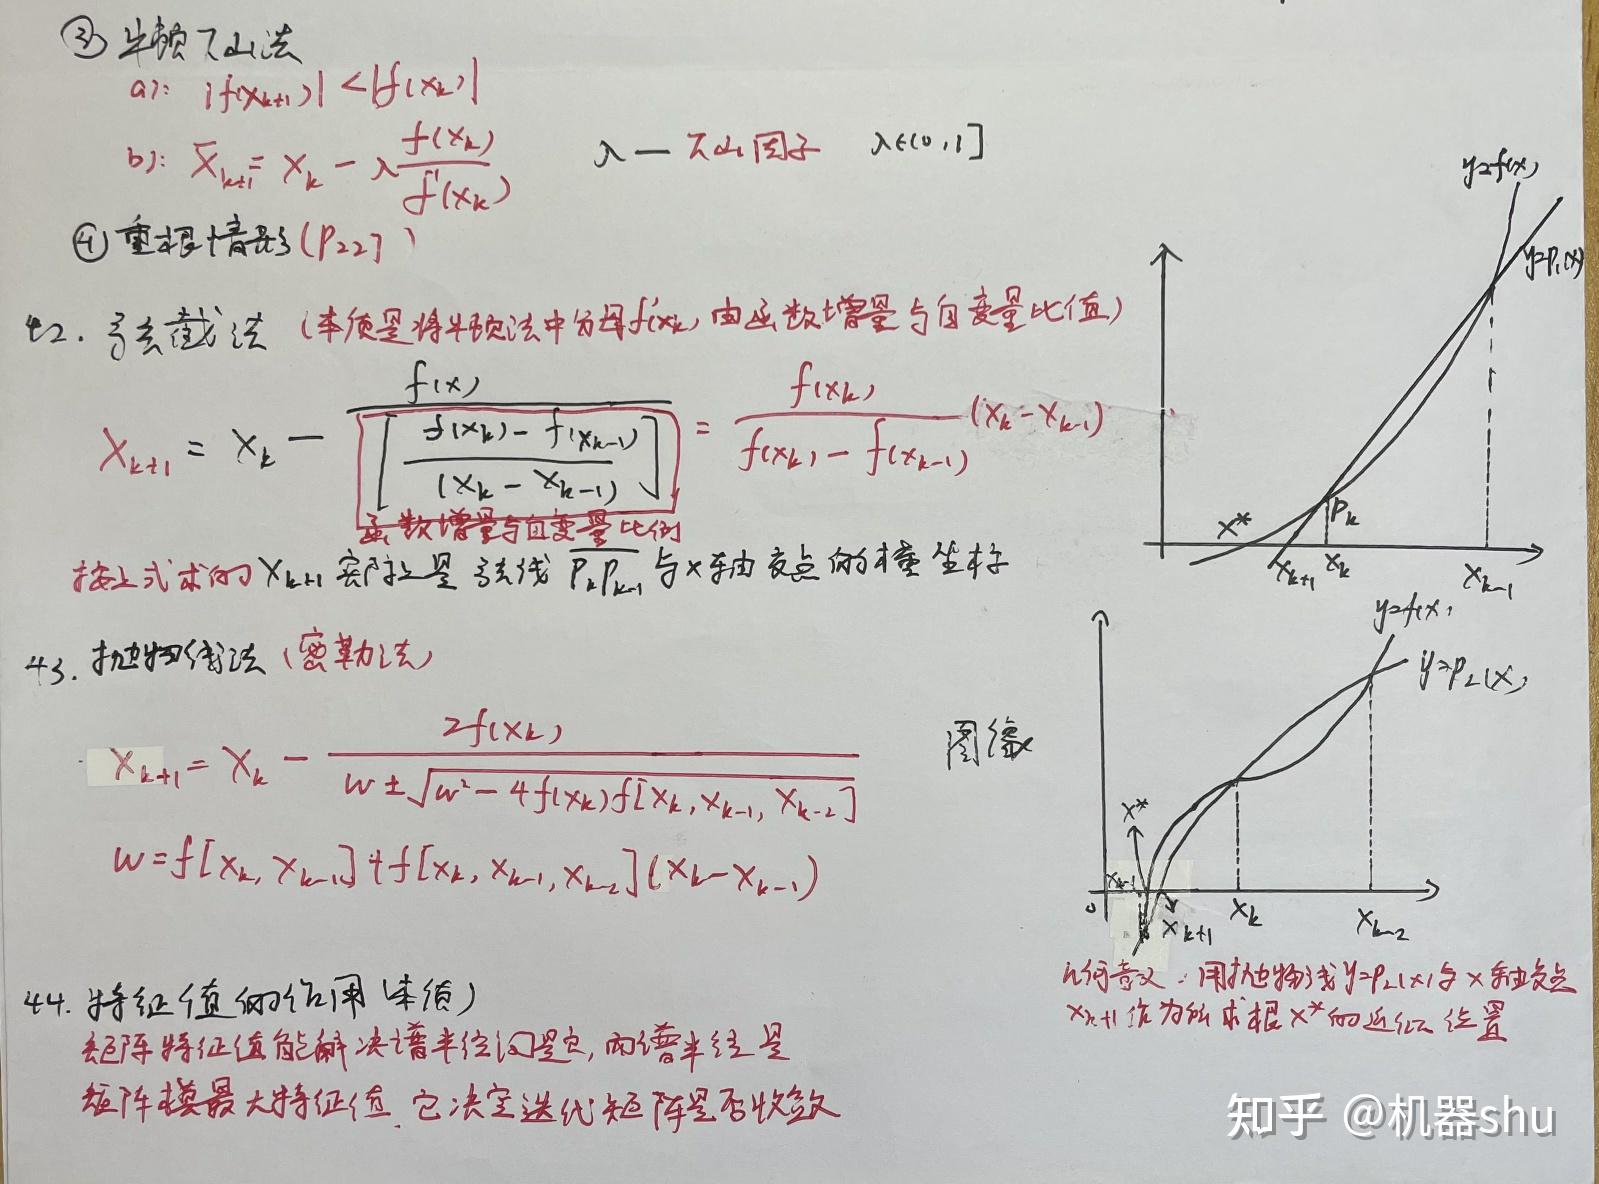 ③ 牛顿下山法
a): |f(x_{k+1})| < |f(x_k)|
b): x̄_{k+1} = x_k - λ f(x_k)/f'(x_k) λ — 下山因子 λ∈(0,1]
④ 重根情形 (P227)
42. 弦截法 (本质是将牛顿法中分母f'(x_k) 由函数增量与自变量比值)
x_{k+1} = x_k - f(x)/[(f(x_k) - f(x_{k-1}))/(x_k - x_{k-1})] = f(x_k)/(f(x_k) - f(x_{k-1})) (x_k - x_{k-1})
函数增量与自变量比例
按上式求的 x_{k+1} 实际上是弦线 P_kP_{k-1} 与x轴交点的横坐标
y=f(x)
y=P_1(x)
P_k
x* x_{k+1} x_k x_{k-1}
43. 抛物线法 (密勒法)
x_{k+1} = x_k - 2f(x_k)/(w ± √(w² - 4f(x_k)f[x_k, x_{k-1}, x_{k-2}]))
w = f[x_k, x_{k-1}] + f[x_k, x_{k-1}, x_{k-2}](x_k - x_{k-1})
图像
y=f(x)
y=P_2(x)
x*
x_{k-1}
0 x_{k+1} x_k x_{k-2}
几何意义：用抛物线y=P_2(x)与x轴交点
x_{k+1}作为所求根x*的近似位置
44. 特征值的作用 (本质)
矩阵特征值能解决谱半径问题, 而谱半径是
矩阵模最大特征值, 它决定迭代矩阵是否收敛
知乎 @机器shu